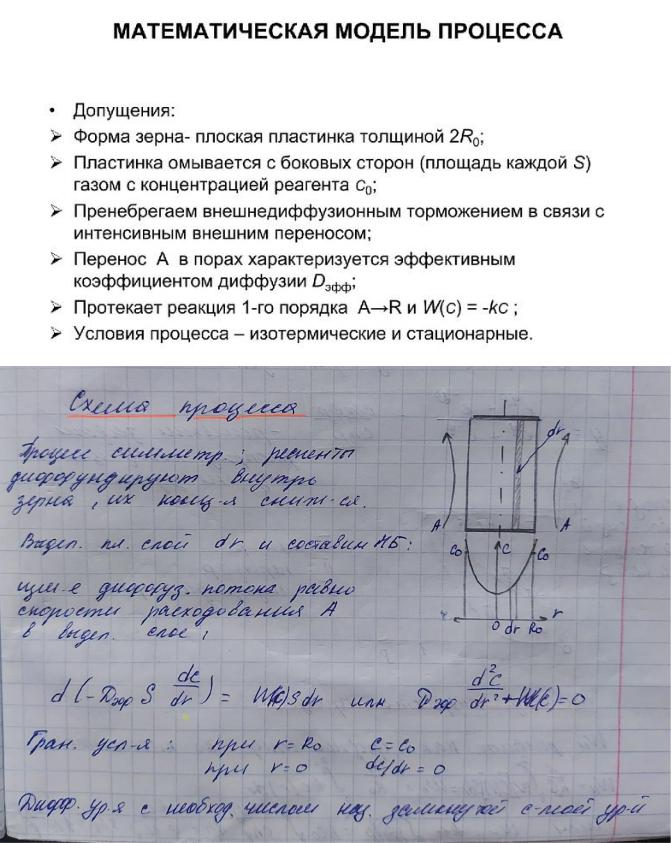 МАТЕМАТИЧЕСКАЯ МОДЕЛЬ ПРОЦЕССА
• Допущения:
➢ Форма зерна- плоская пластинка толщиной 2R₀;
➢ Пластинка омывается с боковых сторон (площадь каждой S)
газом с концентрацией реагента c₀;
➢ Пренебрегаем внешнедиффузионным торможением в связи с
интенсивным внешним переносом;
➢ Перенос А в порах характеризуется эффективным
коэффициентом диффузии Dэфф;
➢ Протекает реакция 1-го порядка A→R и W(c) = -kc ;
➢ Условия процесса – изотермические и стационарные.
Схема процесса
Процесс симметр.; реагенты
диффундируют внутрь
зерна, их конц-я сниж-ся.
Выдел. пл. слой dr и составим МБ:
изм-е диффуз. потока равно
скорости расходования А
в выдел. слое:
dr
A A
C₀ C C₀
0 dr R₀ r
d(-Dэф S dc/dr) = W(c)Sdr или Dэф d²c/dr² + W(c) = 0
Гран. усл-я: при r = R₀ c = c₀
при r = 0 dc/dr = 0
Дифф. ур-я с необход. числом нач. замкнутой с-мой ур-й